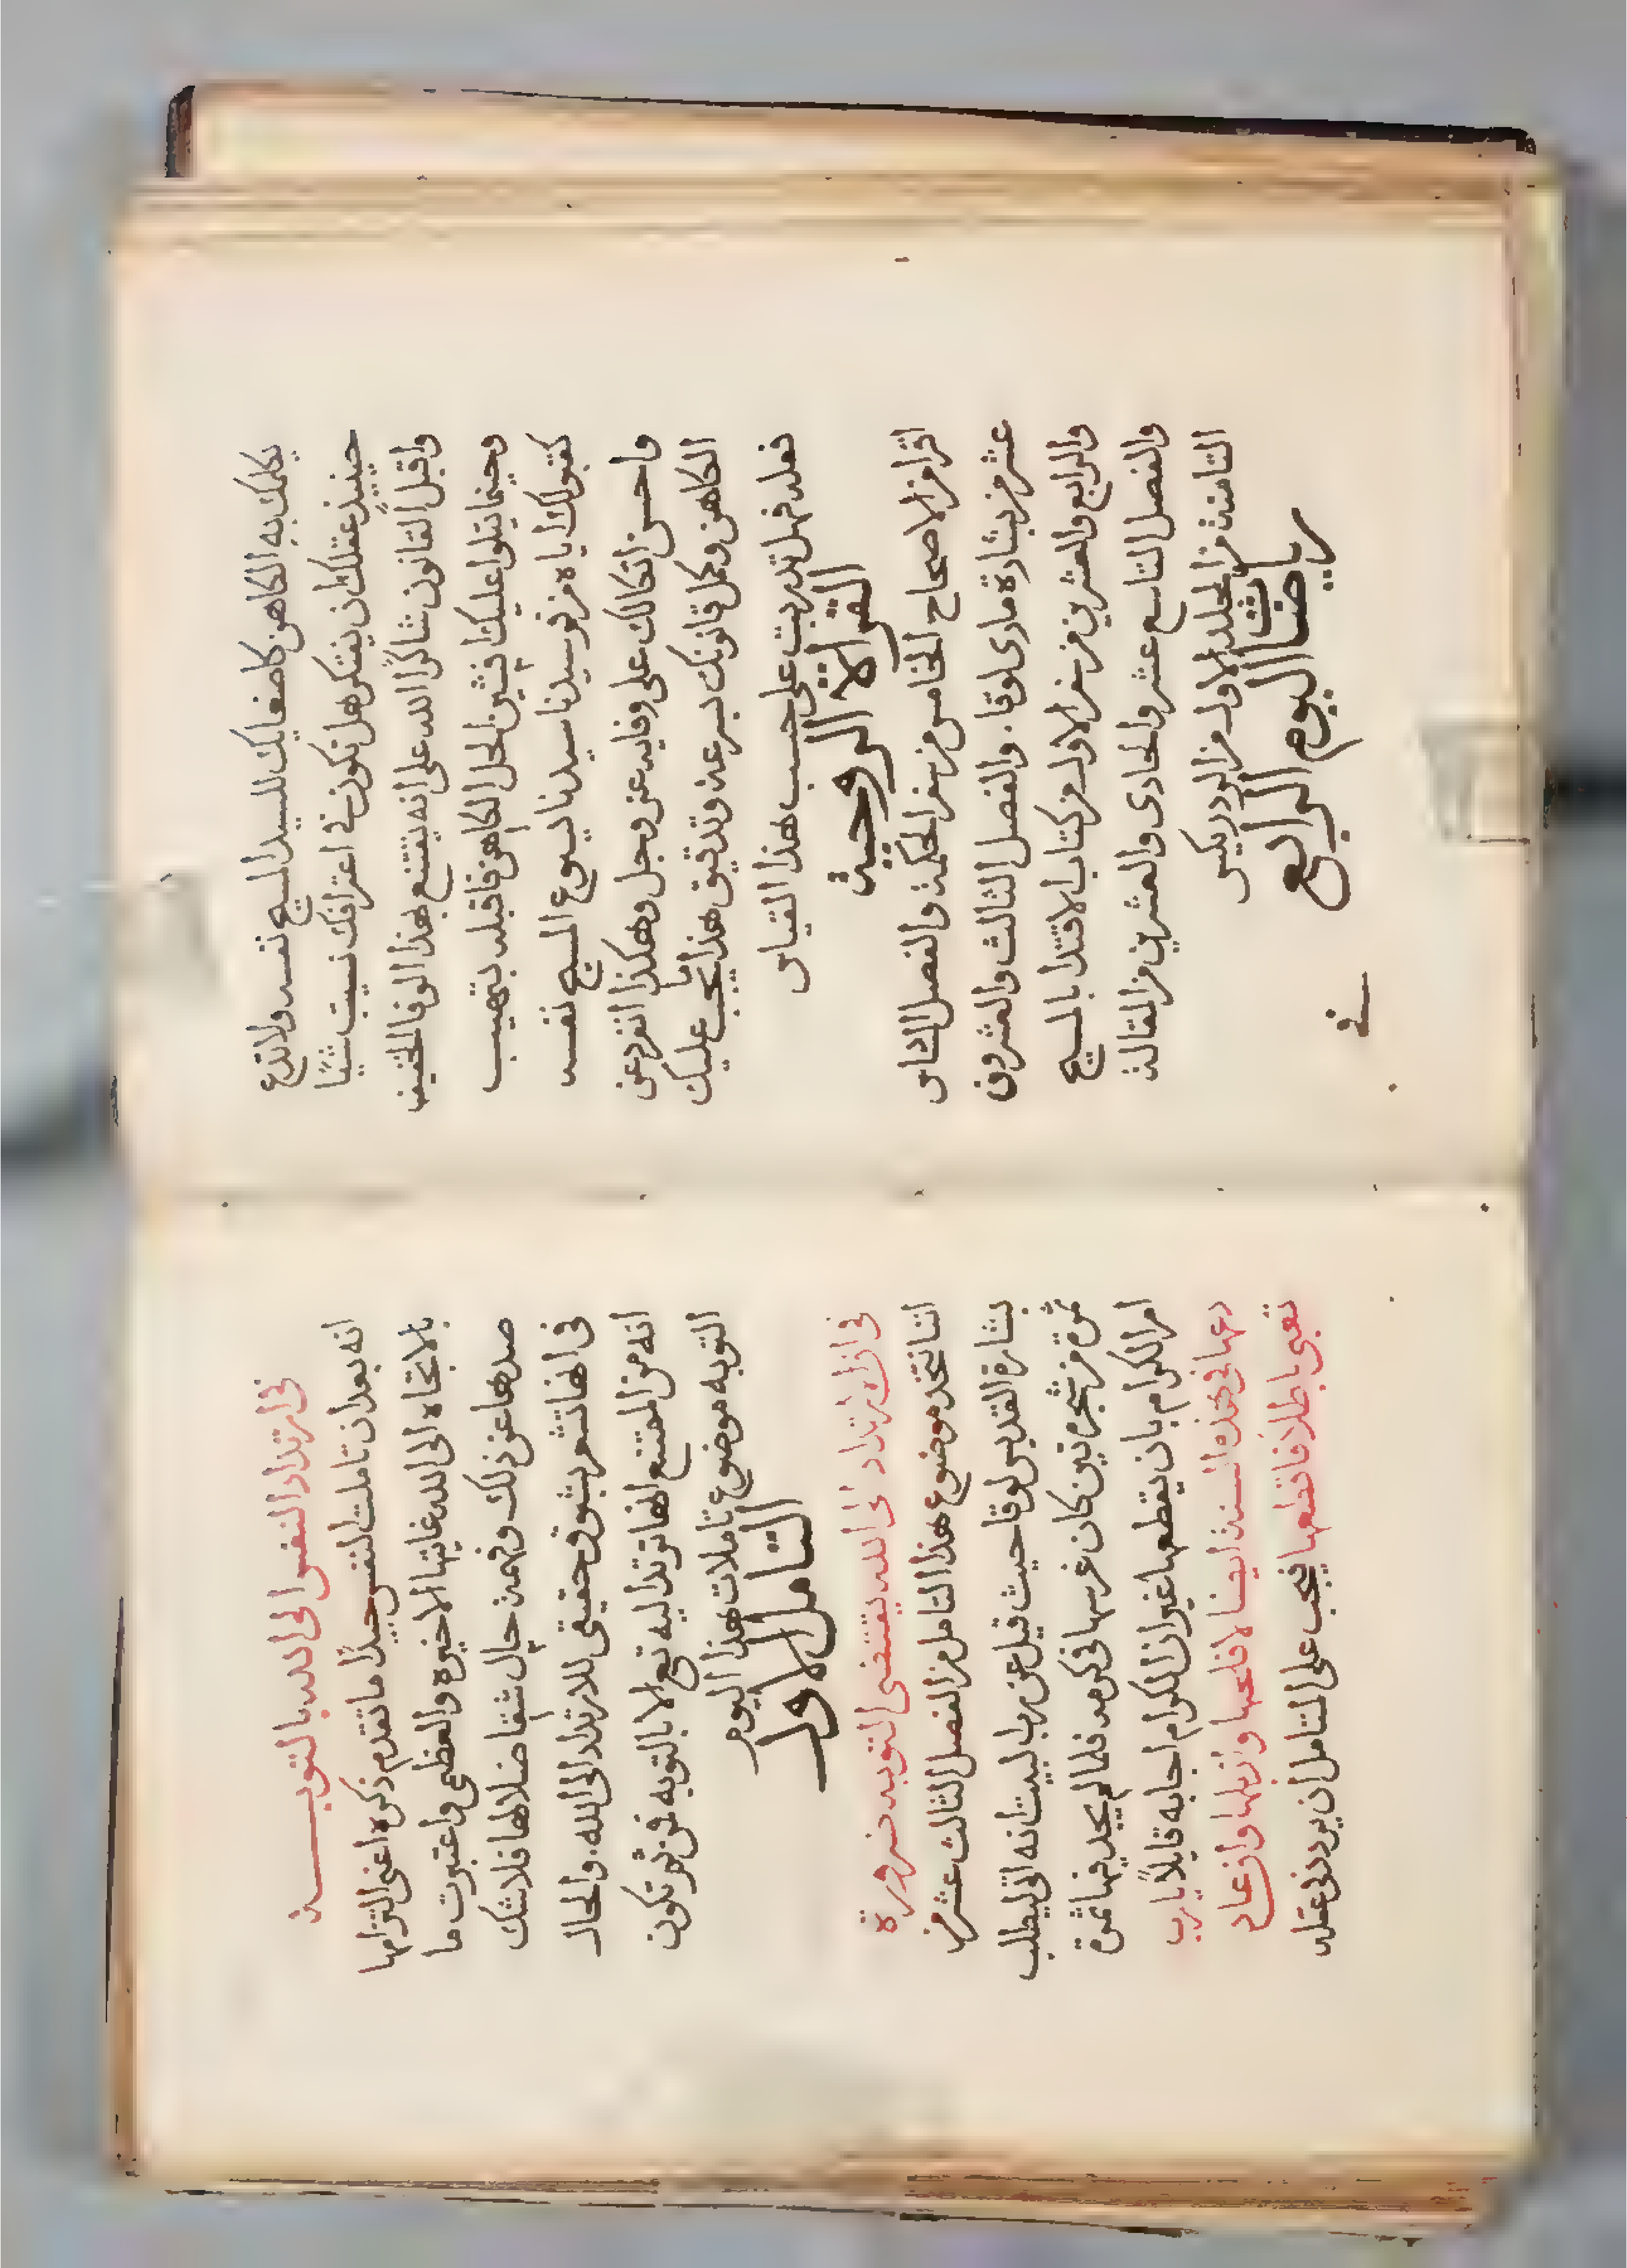 يكلمك به الكاهن كاصغايك للسيد المسيح نفسه ولا تدع
حينيذٍ عقلك ان يفتكر هل تكون في اعترافك نسيت شيًا
واقبل القانون شاكرًا الله على انه يقتنع بهذا الوفا الخفيف
وحينما يتلوا عليك افشين الحل الكاهن فاقبله بتهيب
كقبولك اياه من فم سيدنا يسوع المسيح نفسه
واحسن اتكالك على وفايه عز وجل وهكذا انفرد عن
الكاهن وكمل قانونك بسرعة وتدقيق هذا ما يجب عليك
فعله فهل تدربت على حسب هذا القياس
القراة الروحية
اقرا من الاصحاح الخامس من سفر الحكمة والفصل الثاني
عشر من بشارة ماري لوقا. والفصل الثالث والعشرون
والرابع والعشرين من سفر الاول من كتاب الاقتدا بالمسيح
والفصل التاسع عشر والحادي والعشرين من المقالة
الثامنة من المجلد الاول من الرودريكس
رياضات اليوم الرابع
في
في ارتداد النفس الى الله بالتوبة
انه بعد ان تاملت النفس جيدًا ما تقدم ذكره اعني التزامها
بالاتجاه الى الله غايتها الاخيره والعظمى واعتبرت ما
صدها عن ذلك وفهمت حال شقا ضلالها فلا شك
في انها تشعر بشوق حقيقي للارتداد الى الله. والحال
انه من الممتنع انها ترتد اليه تع الا بالتوبه فمن ثم تكون
التوبه موضوع تاملات هذا اليوم
التامل الاول
في ان الارتداد الى الله يقتضي التوبه ضرورة
اننا نتخذ موضوع هذا التامل من الفصل الثالث عشر من
بشارة القديس لوقا حيث قيل عن رب البيت انه اتى ليطلب
ثمرة من شجرة تين كان غرسها في كرمه فلما لم يجد فيها ثمرة
امر الكرام بان يقطعها غير ان الكرام اجابه قايلاً يا رب
دعها في هذه السنة ايضا لافلحها وازبلها وان عاد
تعبي باطلاً فاقطعها فيجب على المتامل ان يردد في عقله